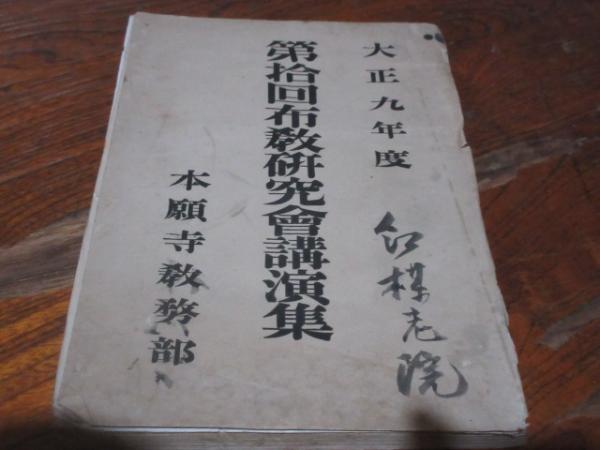 大正九年度
第拾回布教研究會講演集
本願寺教務部